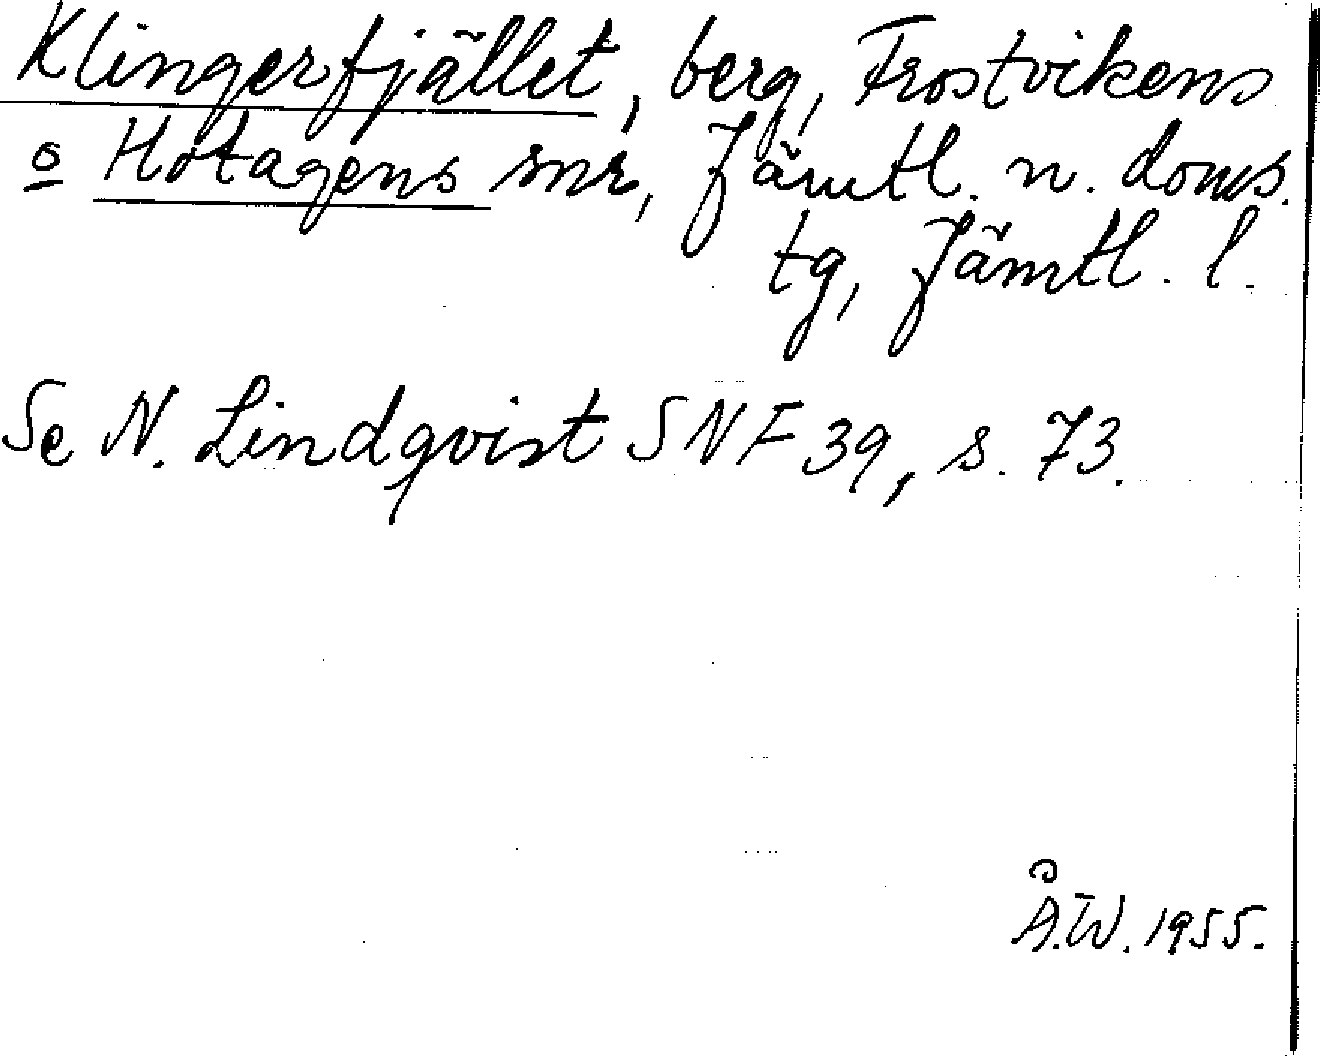 Klingerfjället, berg, Frostvikens
o Hotagens snr, Jämtl. n. doms.
tg, Jämtl. l.
Se N. Lindqvist SNF 39, s. 73.
Å.W. 1955.